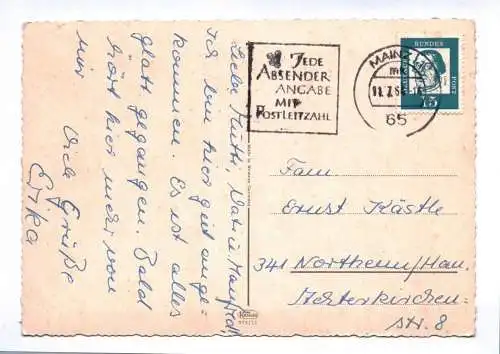 Liebe Mutti, Vati u. Manfred,
Ich bin hier gut ange-
kommen. Es ist alles
glatt gegangen. Bald
hört ihr mehr von
mir
Viele Grüße
Erika
JEDE
ABSENDER
ANGABE
MIT
POSTLEITZAHL
MAINZ
65
DEUTSCHE
BUNDES
POST
15
Fam.
Ernst Kästle
341 Northeim/Han.
Achterkirchen-
str. 8